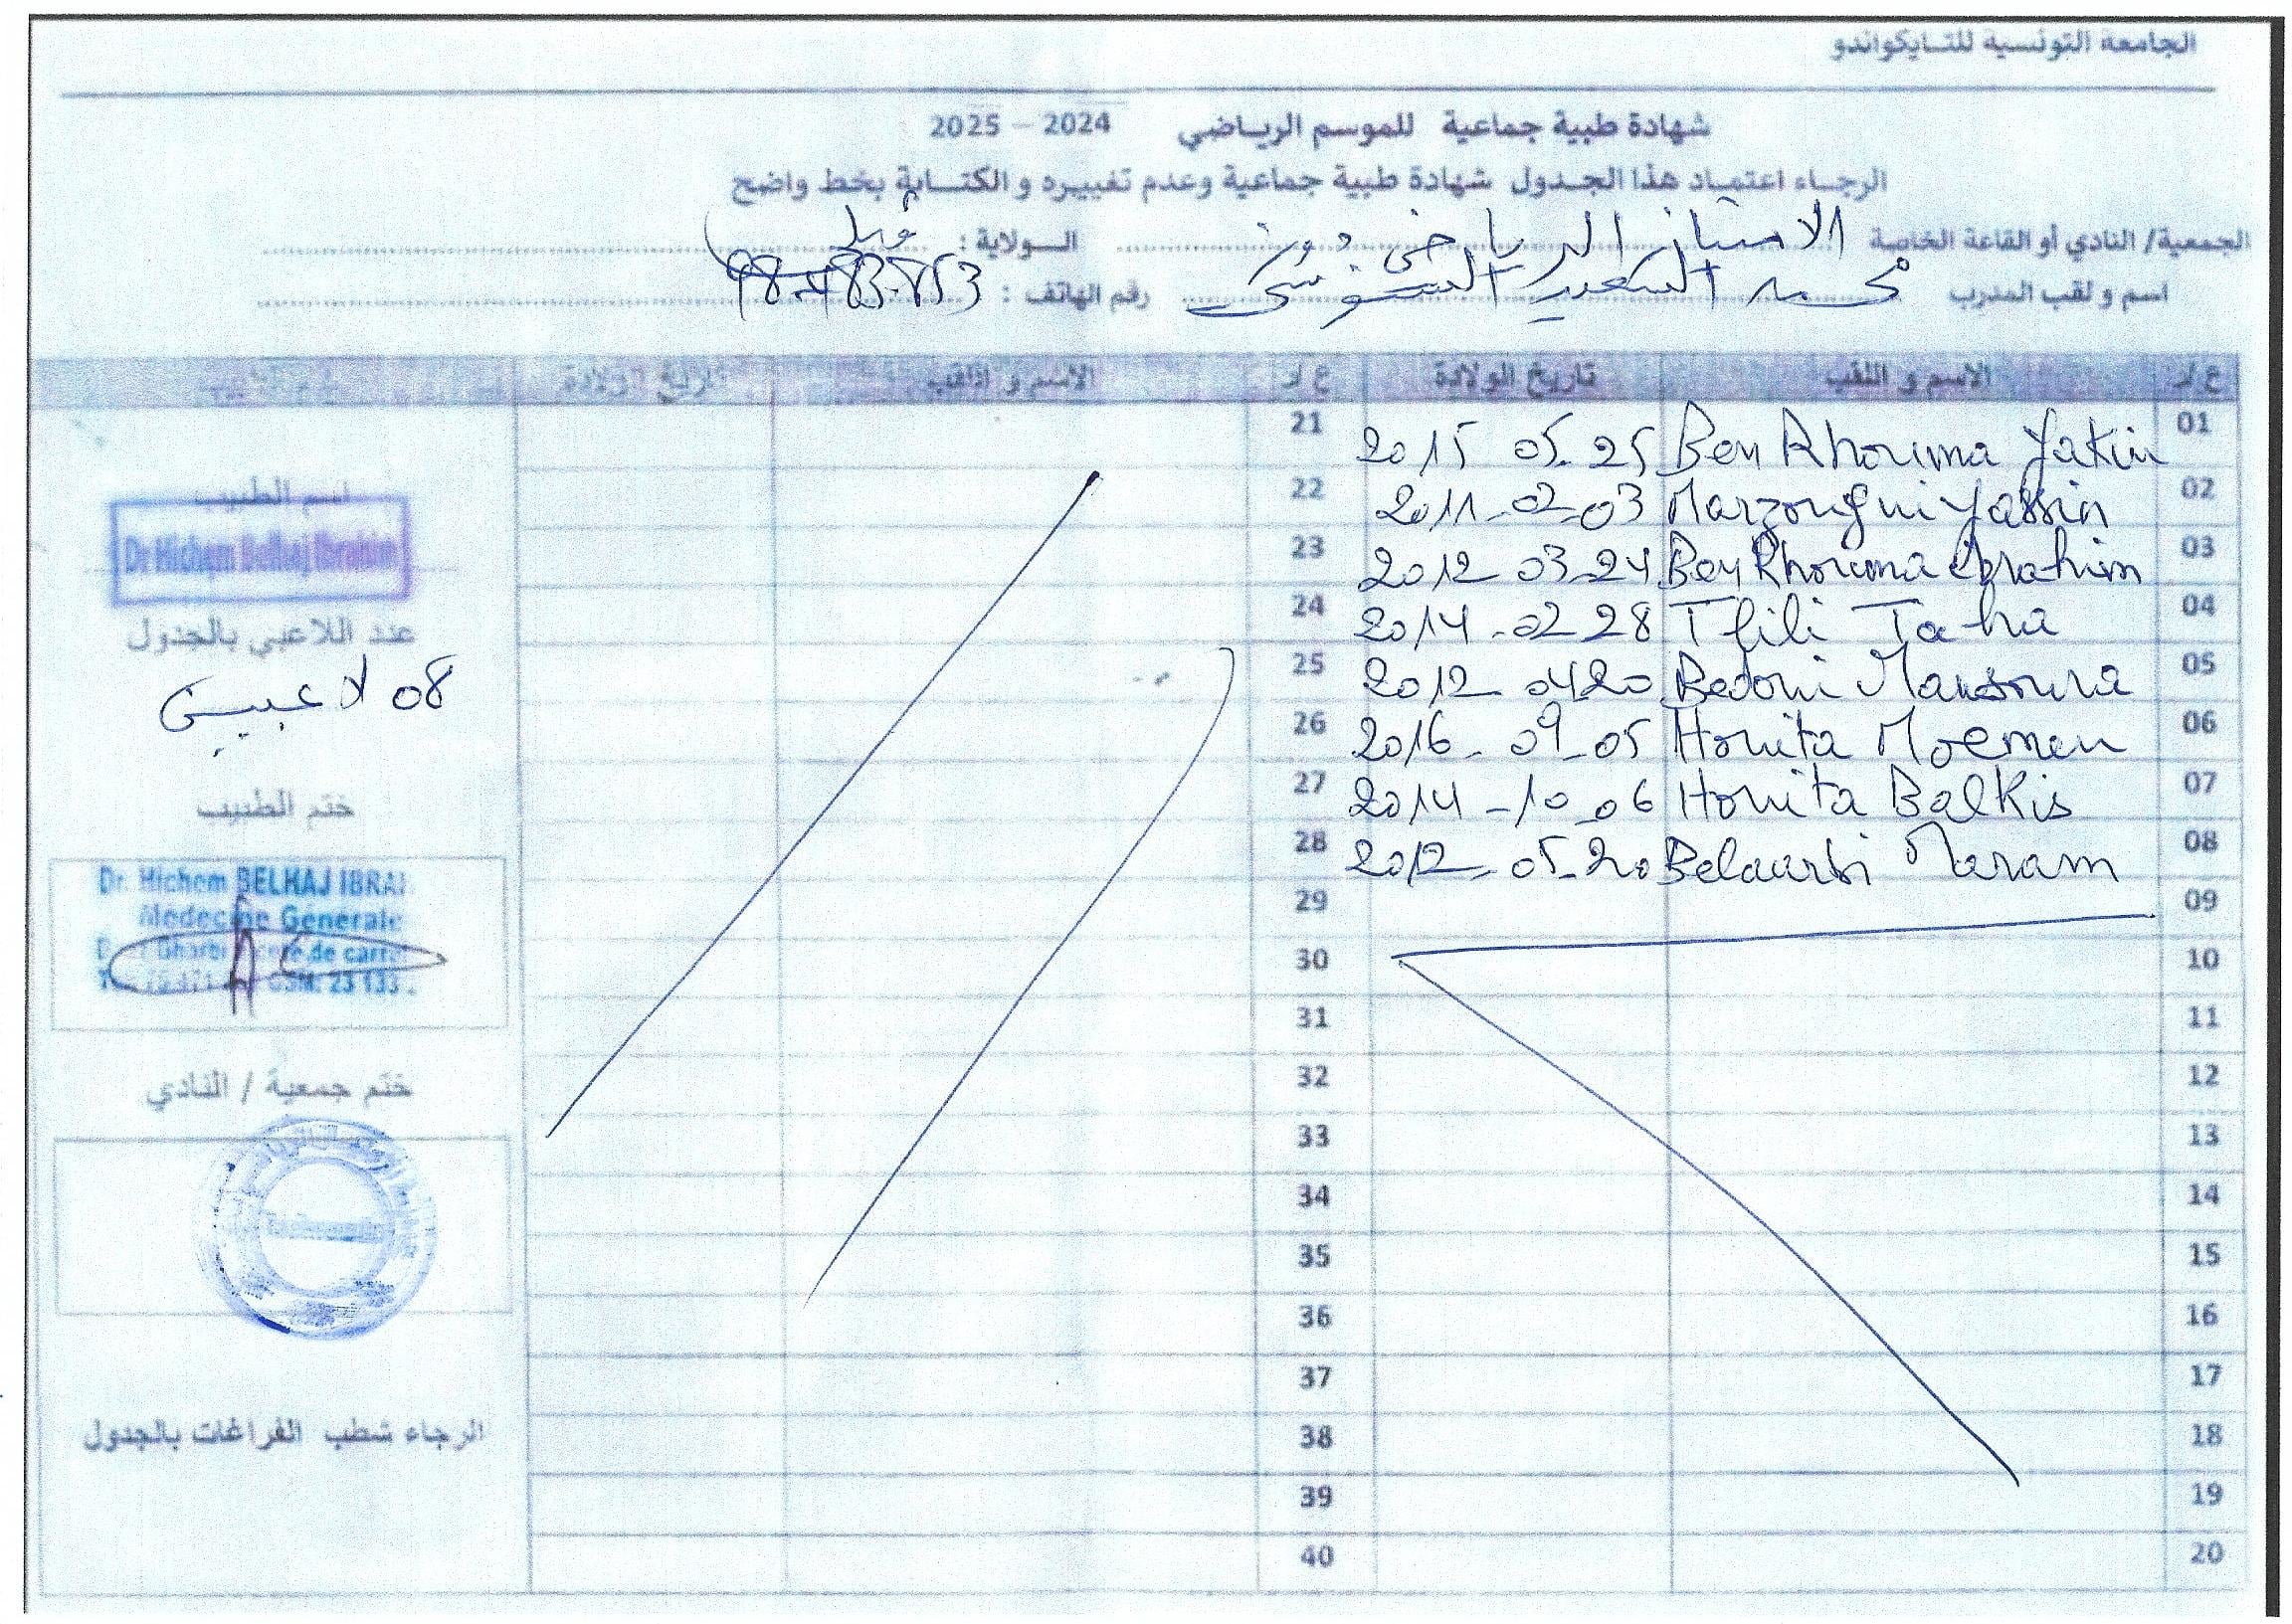 الجامعة التونسية للتـايكواندو
شهادة طبية جماعية للموسم الرياضي 2024 – 2025
الرجاء اعتماد هذا الجدول شهادة طبية جماعية وعدم تغييره و الكتابة بخط واضح
الجمعية/ النادي أو القاعة الخاصة الامتياز الرياضي دوز الـولاية : قبلي
اسم و لقب المدرب محمد السعيد السنوسي رقم الهاتف : 98.483.853
ع/ر الاسم و اللقب تاريخ الولادة ع/ر الاسم و اللقب تاريخ الولادة
01 Ben Rhouma Yakin 2015 05-25 21
02 Marzougui Yassin 2011-02-03 22
03 Ben Rhouma Ibrahim 2012 03-24 23
04 Tlili Taha 2014-02 28 24
05 Bedoui Mansoura 2012 04 20 25
06 Houita Moemen 2016-09-05 26
07 Houita Balkis 2014-10-06 27
08 Belaarbi Maram 2012-05-20 28
09 29
10 30
11 31
12 32
13 33
14 34
15 35
16 36
17 37
18 38
19 39
20 40
اسم الطبيب
Dr Hichem Belhaj Ibrahim
عدد اللاعبي بالجدول
08 لاعبين
ختم الطبيب
Dr. Hichem BELHAJ IBRAHI
Medecine Générale
GSM: 23 133
ختم جمعية / النادي
Taekwondo
الرجاء شطب الفراغات بالجدول